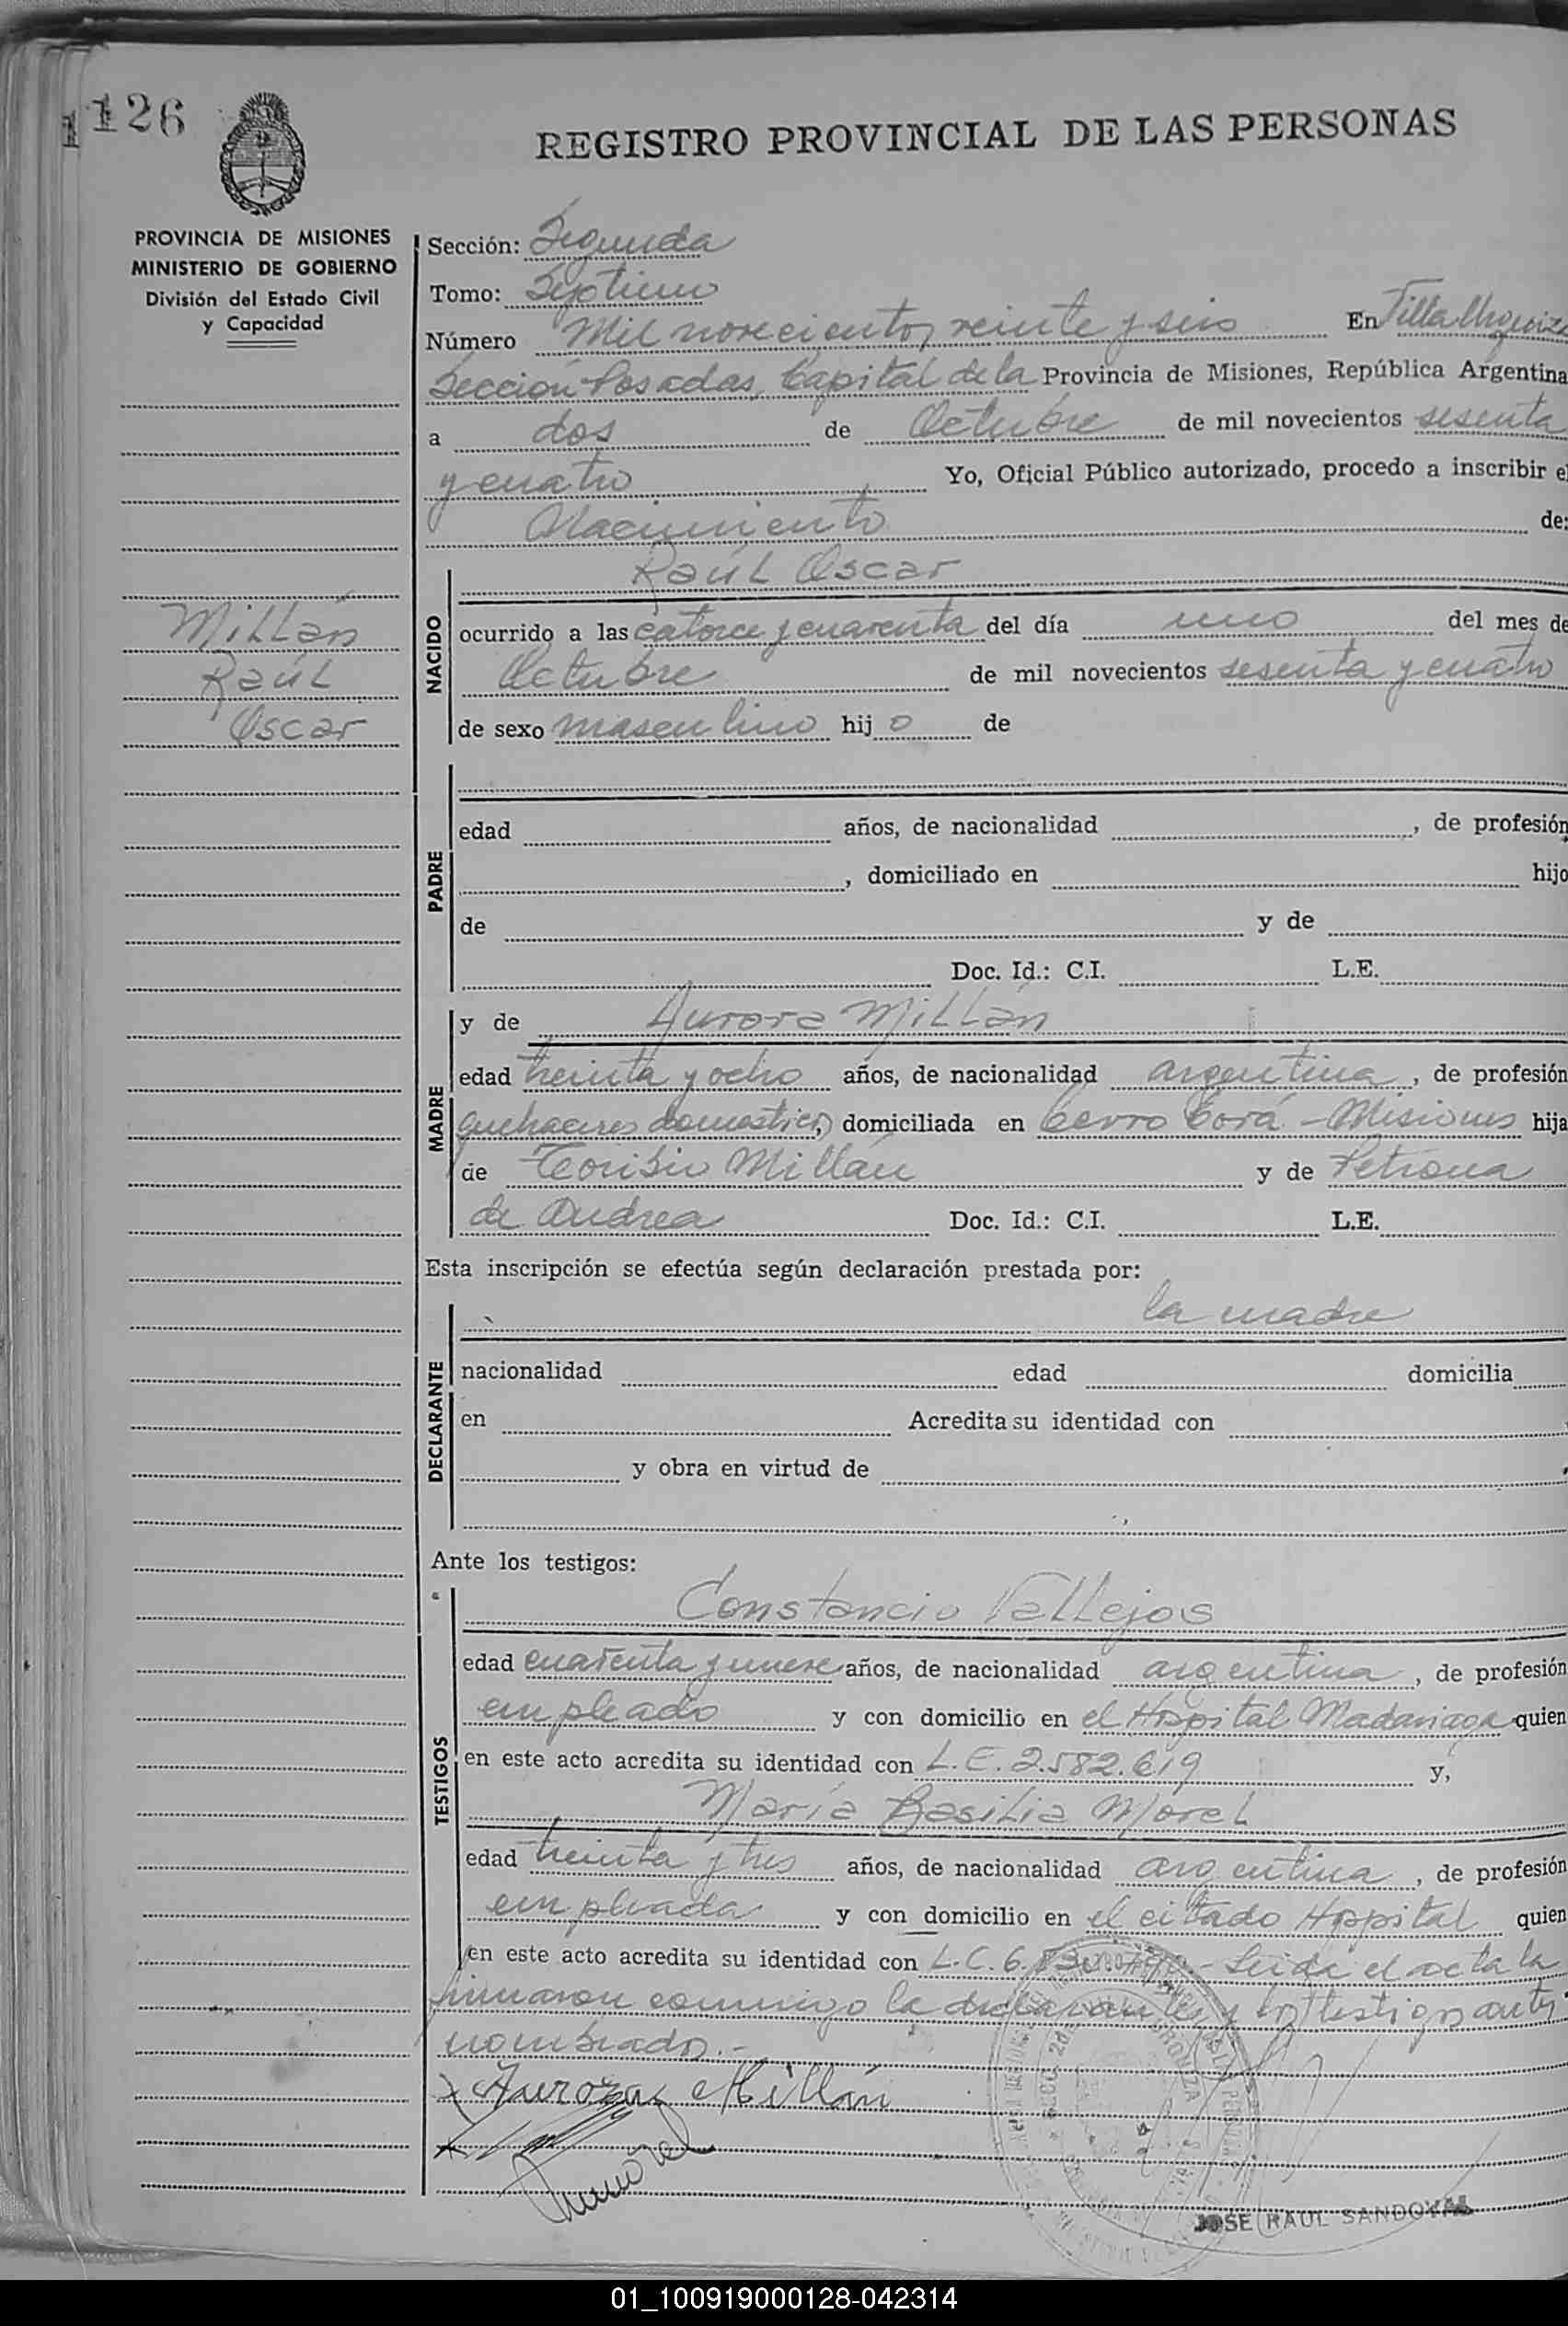 126
REGISTRO PROVINCIAL DE LAS PERSONAS
PROVINCIA DE MISIONES
MINISTERIO DE GOBIERNO
División del Estado Civil
y Capacidad
Sección: Segunda
Tomo: Septimo
Número Mil novecientos veinte y seis En Villa Urquiza
Sección Posadas, Capital de la Provincia de Misiones, República Argentina
a dos de Octubre de mil novecientos sesenta
y cuatro Yo, Oficial Público autorizado, procedo a inscribir el
Nacimiento de:
Millán
Raúl
Oscar
NACIDO
Raúl Oscar
ocurrido a las catorce y cuarenta del día uno del mes de
Octubre de mil novecientos sesenta y cuatro
de sexo masculino hijo de
PADRE
edad años, de nacionalidad , de profesión
, domiciliado en hijo
de y de
Doc. Id.: C.I. L.E.
MADRE
y de Aurora Millán
edad treinta y ocho años, de nacionalidad argentina, de profesión
quehaceres domesticos, domiciliada en Cerro Corá - Misiones hija
de Toribio Millán y de Petrona
de Andrea Doc. Id.: C.I. L.E.
Esta inscripción se efectúa según declaración prestada por:
DECLARANTE
la madre
nacionalidad edad domicilia
en Acredita su identidad con
y obra en virtud de
Ante los testigos:
TESTIGOS
Constancio Vallejos
edad cuarenta y nueve años, de nacionalidad argentina, de profesión
empleado y con domicilio en el Hospital Madariaga quien
en este acto acredita su identidad con L.E. 2.582.619 y,
María Basilia Morel
edad treinta y tres años, de nacionalidad argentina, de profesión
empleada y con domicilio en el citado Hospital quien
en este acto acredita su identidad con L.C. 6. - Leida el acta la
firmaron conmigo la declarante y los testigos antes
nombrados.-
Aurora Millán
Morel
JOSE RAUL SANDOVAL
01_100919000128-042314